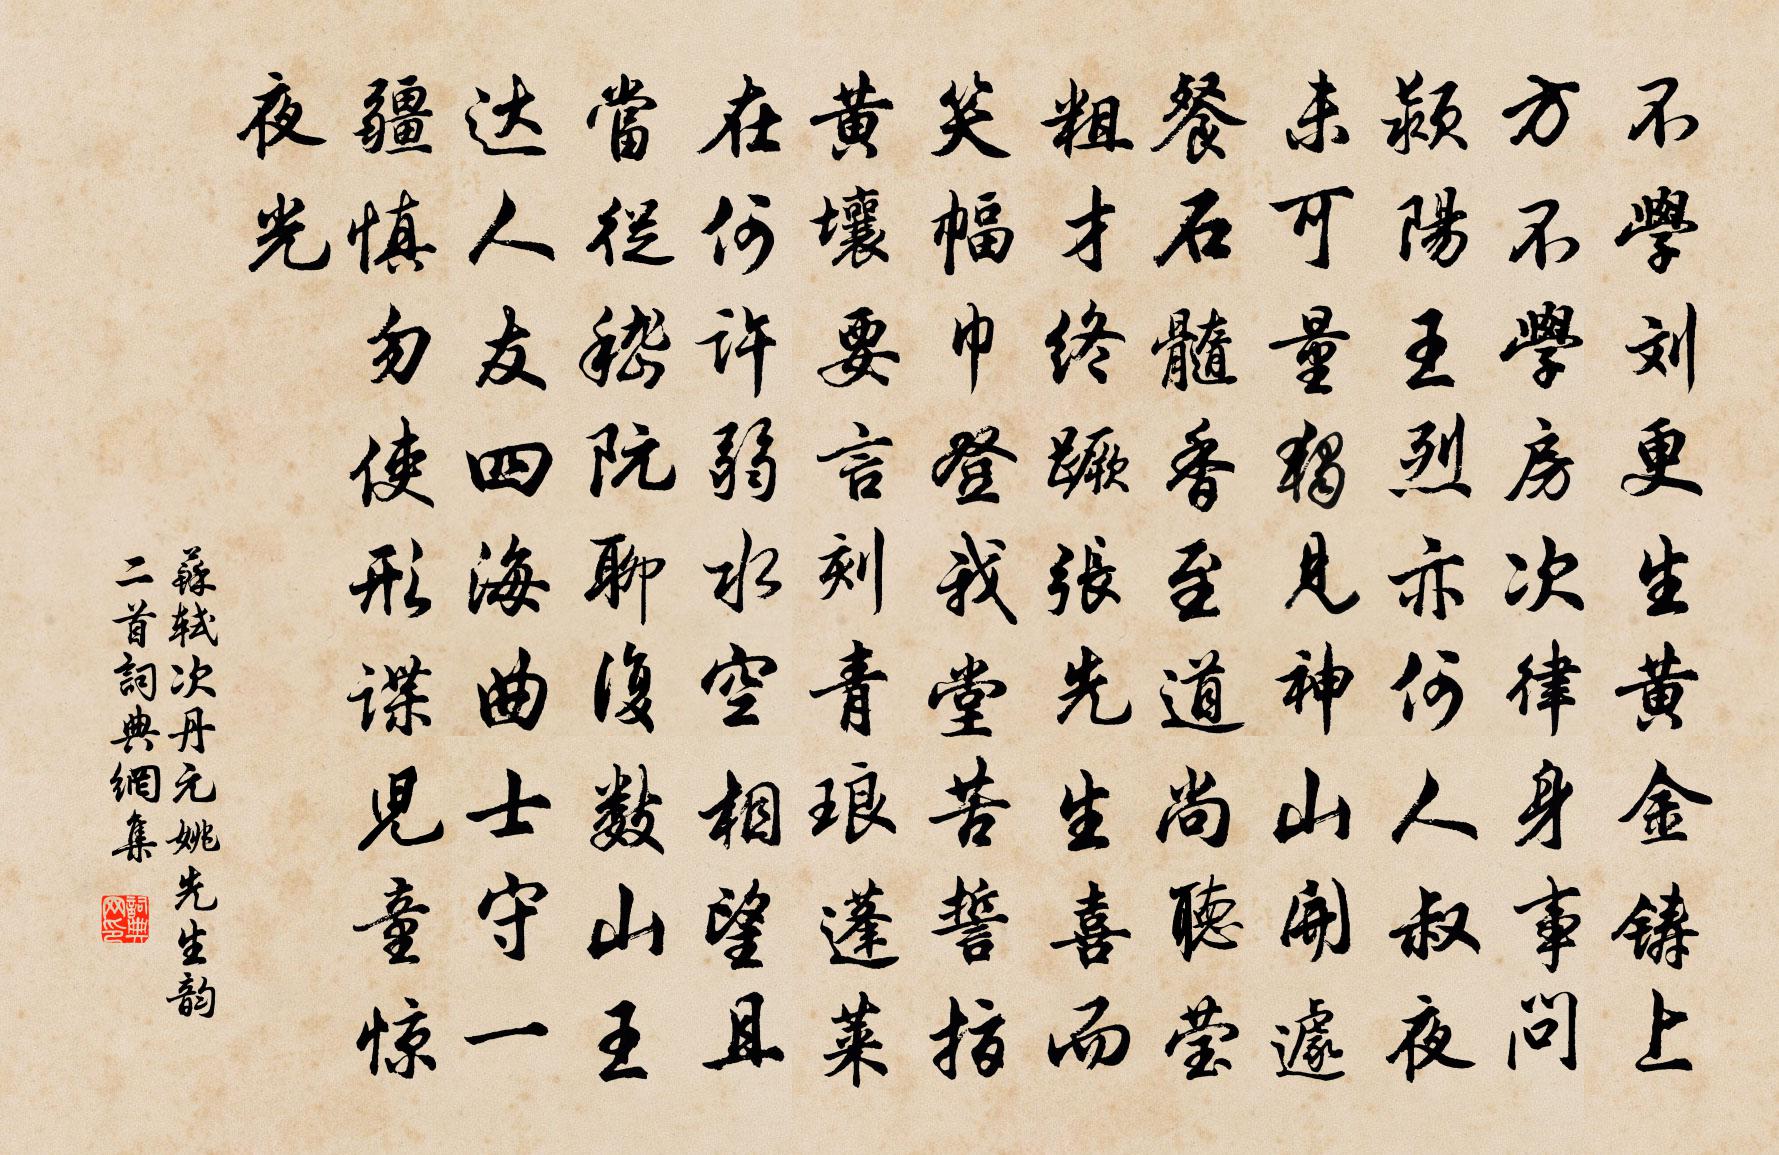 不學刘更生黄金鑄上
方不學房次律身事问
颍陽王烈亦何人叔夜
未可量獨見神山開遽
餐石髓香至道尚聴莹
粗才终蹶張先生喜而
笑幅巾登我堂苦誓指
黄壤要言刻青琅蓬莱
在何許弱水空相望且
當從嵇阮聊復数山王
达人友四海曲士守一
疆慎勿使形諜児童惊
夜光
蘇轼次丹元姚先生韵
二首詞典網集
詞典网印